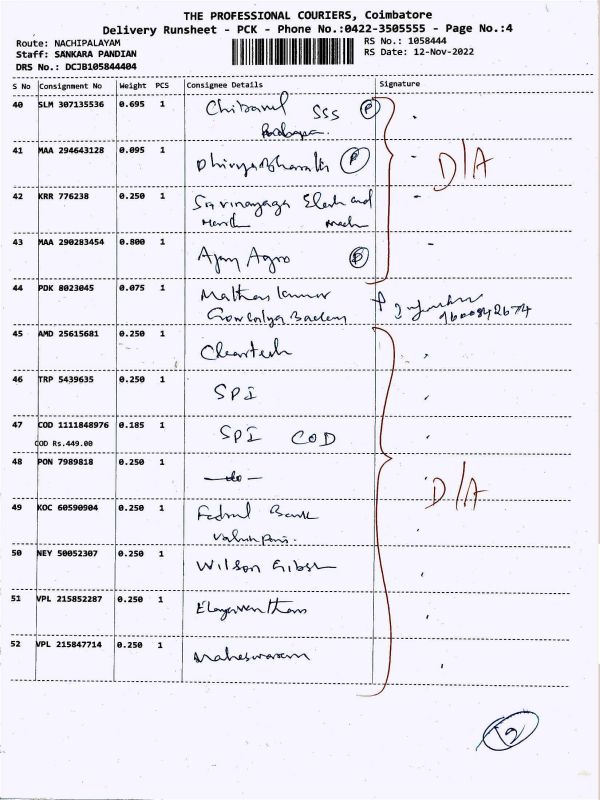 THE PROFESSIONAL COURIERS, Coimbatore
Delivery Runsheet - PCK - Phone No.:0422-3505555 - Page No.:4
Route: NACHIPALAYAM RS No.: 1058444
Staff: SANKARA PANDIAN RS Date: 12-Nov-2022
DRS No.: DCJB105844404
S No Consignment No Weight PCS Consignee Details Signature
40 SLM 307135536 0.695 1 SSS P
41 MAA 294643128 0.095 1 P D/A
42 KRR 776238 0.250 1 and
43 MAA 290283454 0.800 1 Ajay Agro
44 PDK 8023045 0.075 1
45 AMD 25615681 0.250 1 Cleartech
46 TRP 5439635 0.250 1 SPI
47 COD 1111848976 0.185 1 SPI COD
COD Rs.449.00
48 PON 7989818 0.250 1 —do— D/A
49 KOC 60590904 0.250 1 Fedral Bank
50 NEY 50052307 0.250 1 Wilson
51 VPL 215852287 0.250 1
52 VPL 215847714 0.250 1 Maheswaram